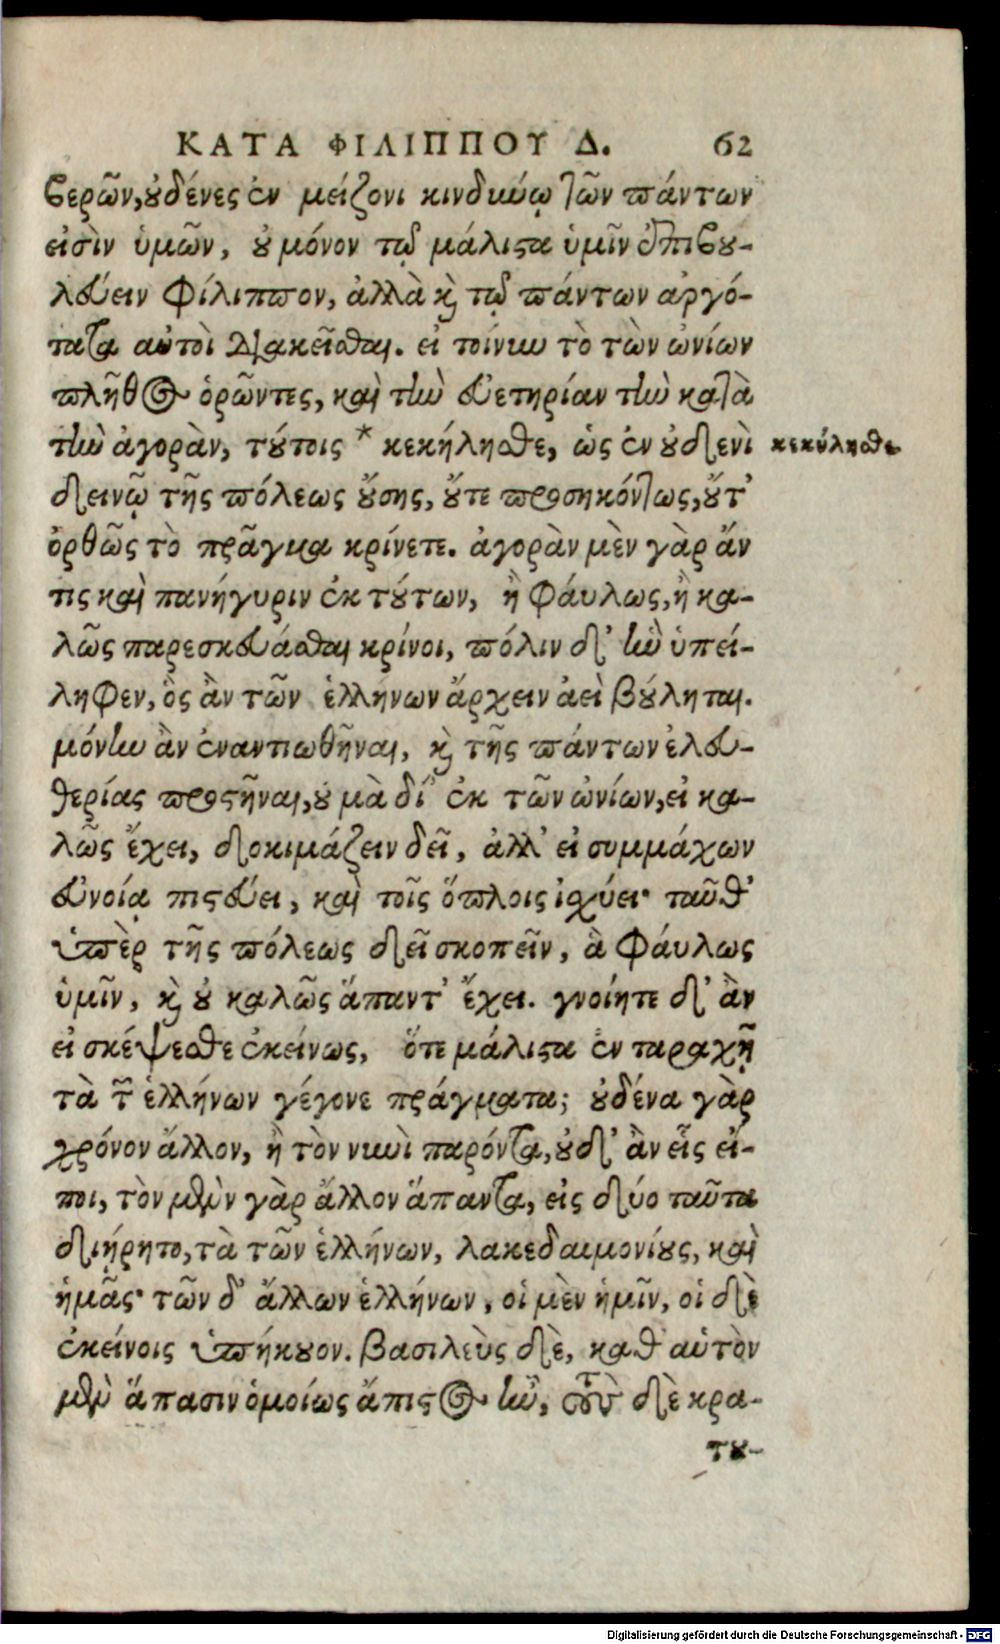 ΚΑΤΑ ΦΙΛΙΠΠΟΥ Δ. 62
βερῶν, οὐδένες ἐν μείζονι κινδύνῳ τῶν πάντων
εἰσὶν ὑμῶν, οὐ μόνον τῷ μάλιστα ὑμῖν ἐπιβου-
λεύειν Φίλιππον, ἀλλὰ καὶ τῷ πάντων ἀργό-
τατα αὐτοὶ διακεῖσθαι. εἰ τοίνυν τὸ τῶν ὠνίων
πλῆθος ὁρῶντες, καὶ τὴν εὐετηρίαν τὴν κατὰ
τὴν ἀγορὰν, τούτοις * κεκήλησθε, ὡς ἐν οὐδενὶ
κεκύλησθε
δεινῷ τῆς πόλεως οὔσης, οὔτε προσηκόντως, οὔτ'
ὀρθῶς τὸ πρᾶγμα κρίνετε. ἀγορὰν μὲν γὰρ ἄν
τις καὶ πανήγυριν ἐκ τούτων, ἢ φαύλως, ἢ κα-
λῶς παρεσκευάσθαι κρίνοι, πόλιν δ' ἣν ὑπεί-
ληφεν, ὃς ἂν τῶν ἑλλήνων ἄρχειν ἀεὶ βούληται.
μόνην ἂν ἐναντιωθῆναι, καὶ τῆς πάντων ἐλευ-
θερίας προστῆναι, οὐ μὰ δί' ἐκ τῶν ὠνίων, εἰ κα-
λῶς ἔχει, δοκιμάζειν δεῖ, ἀλλ' εἰ συμμάχων
εὐνοίᾳ πιστεύει, καὶ τοῖς ὅπλοις ἰσχύει· ταῦθ'
ὑπὲρ τῆς πόλεως δεῖ σκοπεῖν, ἃ φαύλως
ὑμῖν, καὶ οὐ καλῶς ἅπαντ' ἔχει. γνοίητε δ' ἂν
εἰ σκέψεσθε ἐκείνως, ὅτε μάλιστα ἐν ταραχῇ
τὰ τῶν ἑλλήνων γέγονε πράγματα; οὐδένα γὰρ
χρόνον ἄλλον, ἢ τὸν νυνὶ παρόντα, οὐδ' ἂν εἷς εἴ-
ποι, τὸν μὲν γὰρ ἄλλον ἅπαντα, εἰς δύο ταῦτα
διῄρητο, τὰ τῶν ἑλλήνων, λακεδαιμονίους, καὶ
ἡμᾶς· τῶν δ' ἄλλων ἑλλήνων, οἱ μὲν ἡμῖν, οἱ δὲ
ἐκείνοις ὑπήκουον. βασιλεὺς δὲ, καθ' αὑτὸν
μὲν ἅπασιν ὁμοίως ἄπιστος ἦν, τοὺς δὲ κρα-
του-
Digitalisierung gefördert durch die Deutsche Forschungsgemeinschaft - DFG